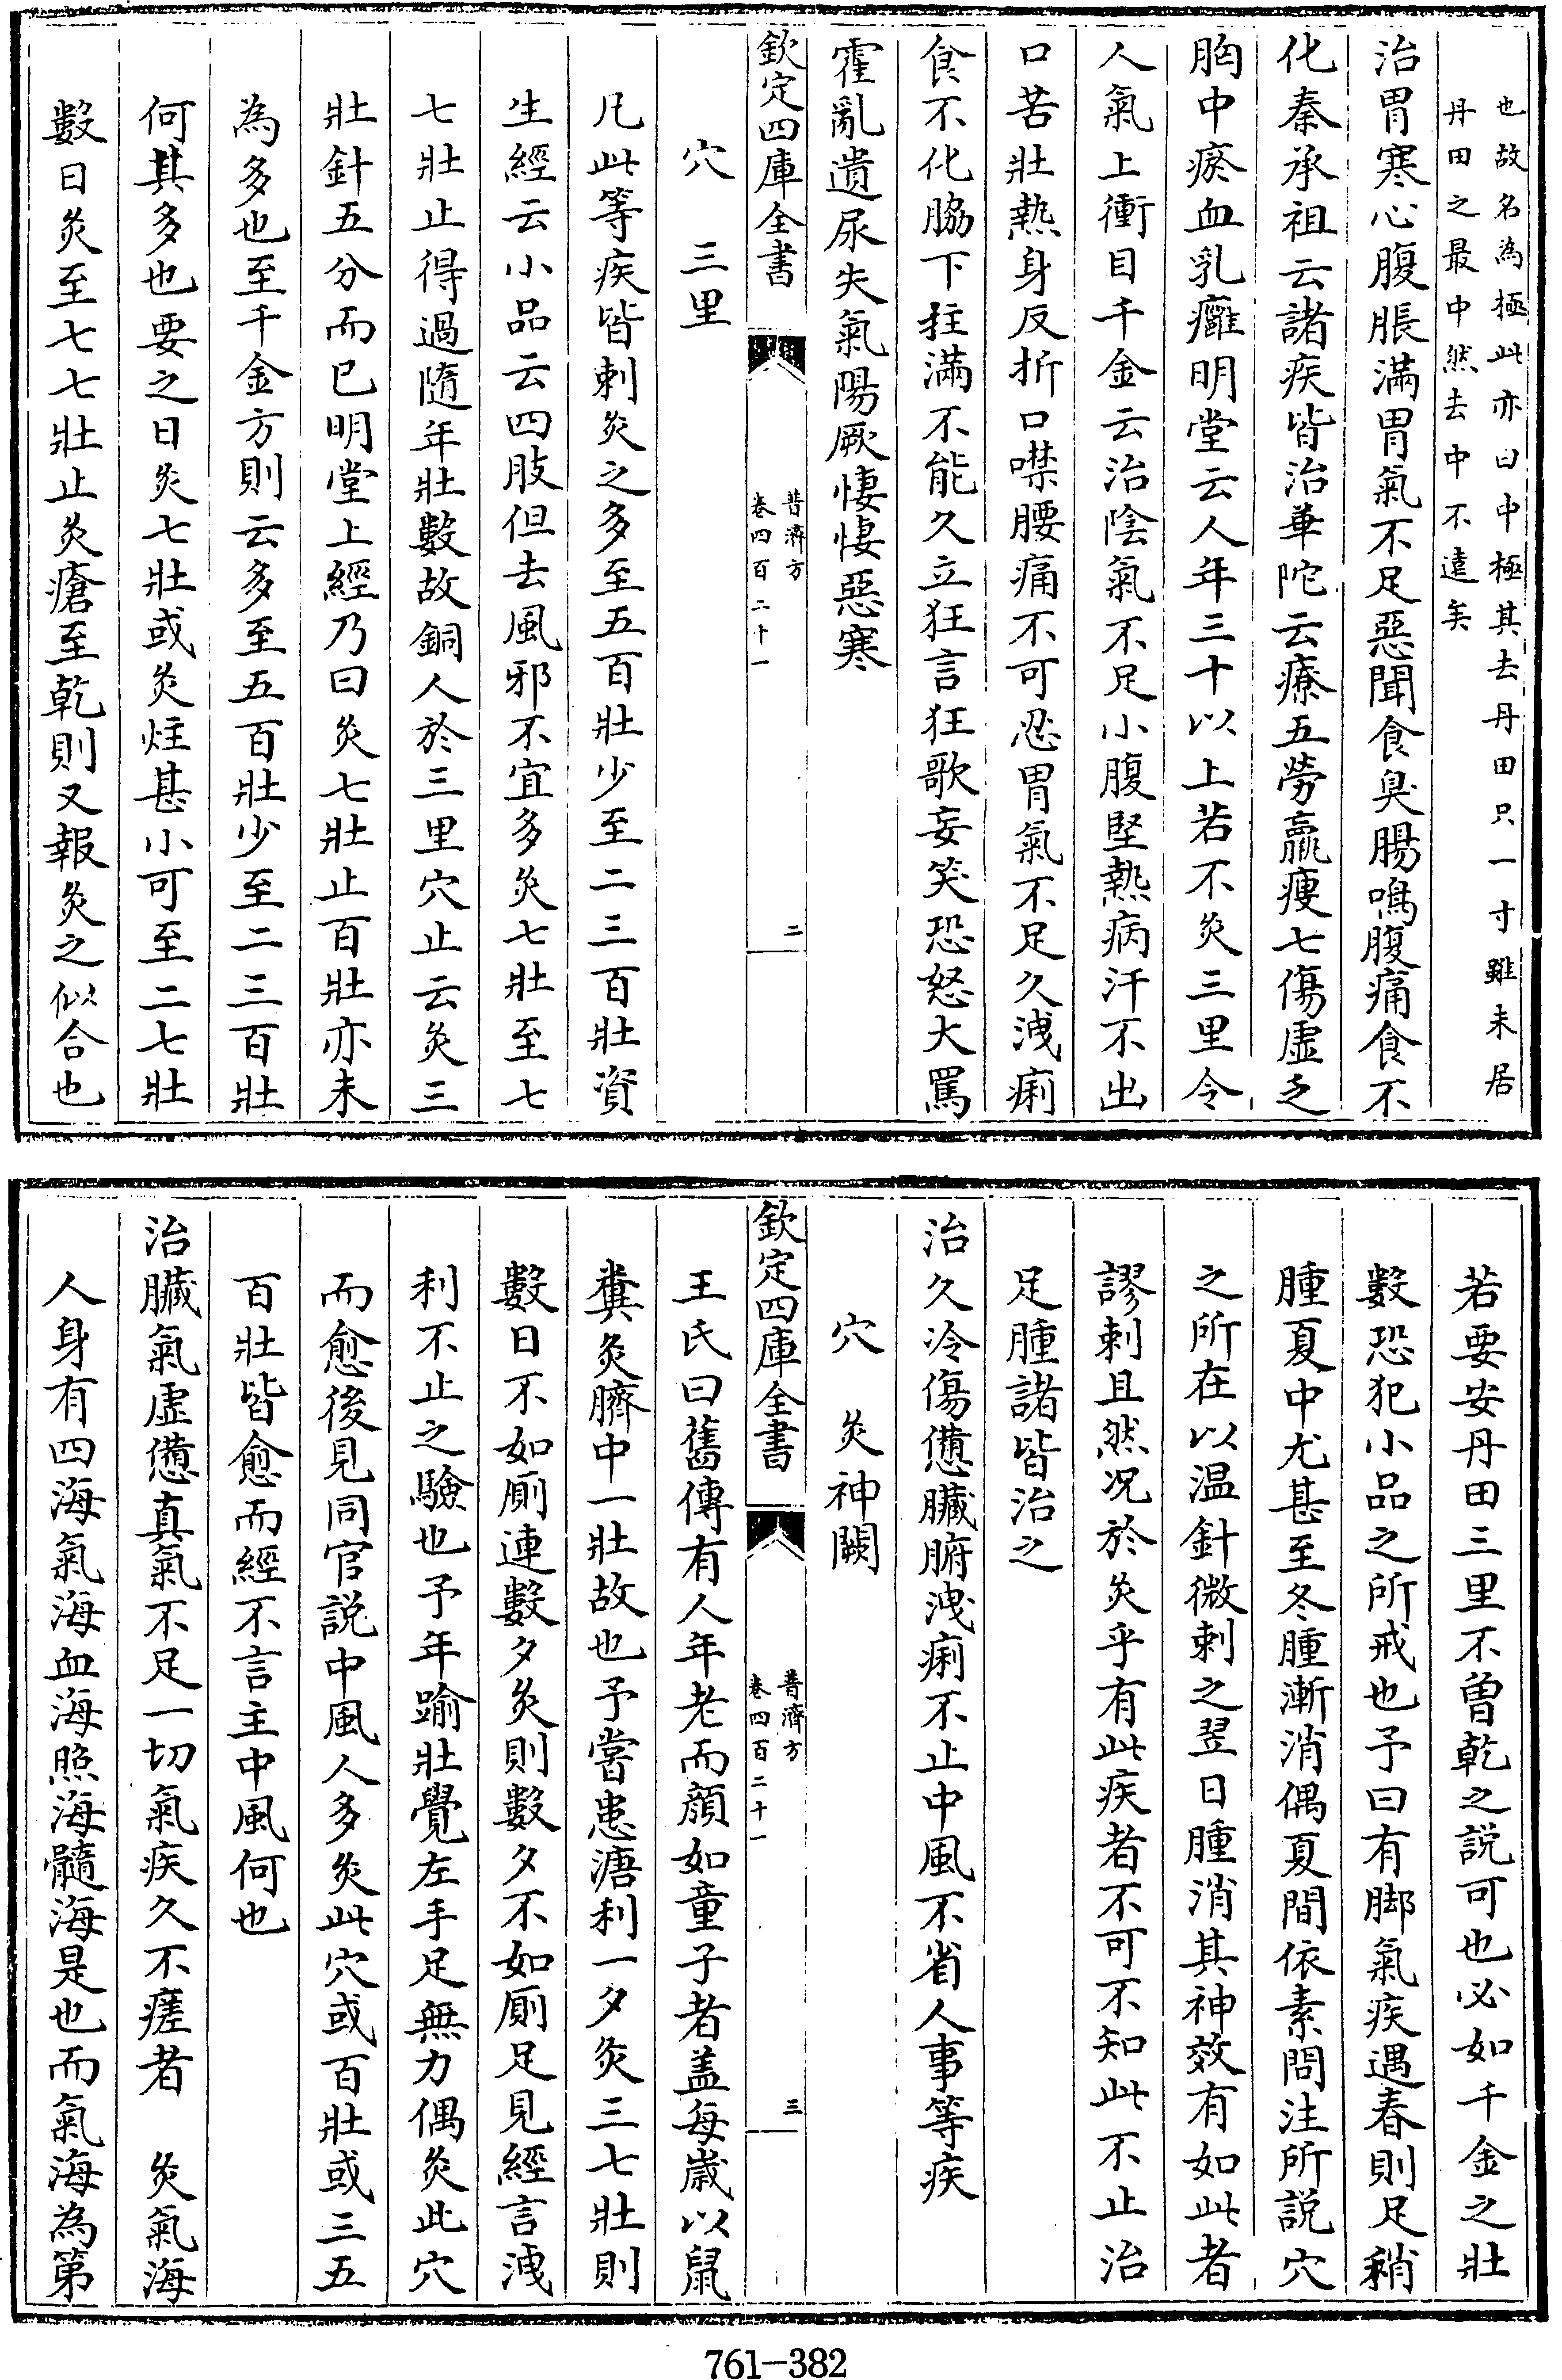 也故名為極此亦曰中極其去丹田只一寸雖未居
丹田之最中然去中不遠矣
治胃寒心腹脹滿胃氣不足惡聞食臭腸鳴腹痛食不
化秦承祖云諸疾皆治華陀云療五勞羸瘦七傷虛乏
胸中瘀血乳癰明堂云人年三十以上若不灸三里令
人氣上衝目千金云治陰氣不足小腹堅熱病汗不出
口苦壯熱身反折口噤腰痛不可忍胃氣不足久洩痢
食不化脇下拄滿不能久立狂言狂歌妄笑恐怒大罵
霍亂遺尿失氣陽厥悽悽惡寒
欽定四庫全書
普濟方
卷四百二十一
二
穴 三里
凡此等疾皆刺灸之多至五百壯少至二三百壯資
生經云小品云四肢但去風邪不宜多灸七壯至七
七壯止得過隨年壯數故銅人於三里穴止云灸三
壯針五分而已明堂上經乃曰灸七壯止百壯亦未
為多也至千金方則云多至五百壯少至二三百壯
何其多也要之日灸七壯或灸炷甚小可至二七壯
數日灸至七七壯止灸瘡至乾則又報灸之似合也
若要安丹田三里不曾乾之説可也必如千金之壯
數恐犯小品之所戒也予曰有脚氣疾遇春則足稍
腫夏中尤甚至冬腫漸消偶夏間依素問注所説穴
之所在以温針微刺之翌日腫消其神效有如此者
謬刺且然况於灸乎有此疾者不可不知此不止治
足腫諸皆治之
治久冷傷憊臟腑洩痢不止中風不省人事等疾
穴 灸神闕
欽定四庫全書
普濟方
卷四百二十一
三
王氏曰舊傳有人年老而顔如童子者盖每歲以鼠
糞灸臍中一壯故也予嘗患溏利一夕灸三七壯則
數日不如厠連數夕灸則數夕不如厠足見經言洩
利不止之驗也予年踰壯覺左手足無力偶灸此穴
而愈後見同官説中風人多灸此穴或百壯或三五
百壯皆愈而經不言主中風何也
治臟氣虛憊真氣不足一切氣疾久不瘥者 灸氣海
人身有四海氣海血海照海髓海是也而氣海為第
761-382